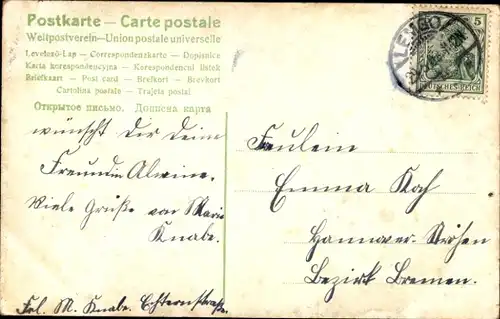 Postkarte – Carte postale
Weltpostverein – Union postale universelle
Levelező-Lap – Correspondenzkarte – Dopisnice
Karta korespondencyjna – Korespondenčni listek
Briefkaart – Post card – Brefkort – Brevkort
Cartolina postale – Trajeta postal
Открытое письмо. Дописна карта
wünscht dir deine
Freundin Alwine.
Viele Grüße von Marie
Knabe.
Frl. M. Knabe. Echternstraße.
LEMGO
5
DEUTSCHES REICH
Fräulein
Emma Koch
Hannover.
Bezirk Bremen.